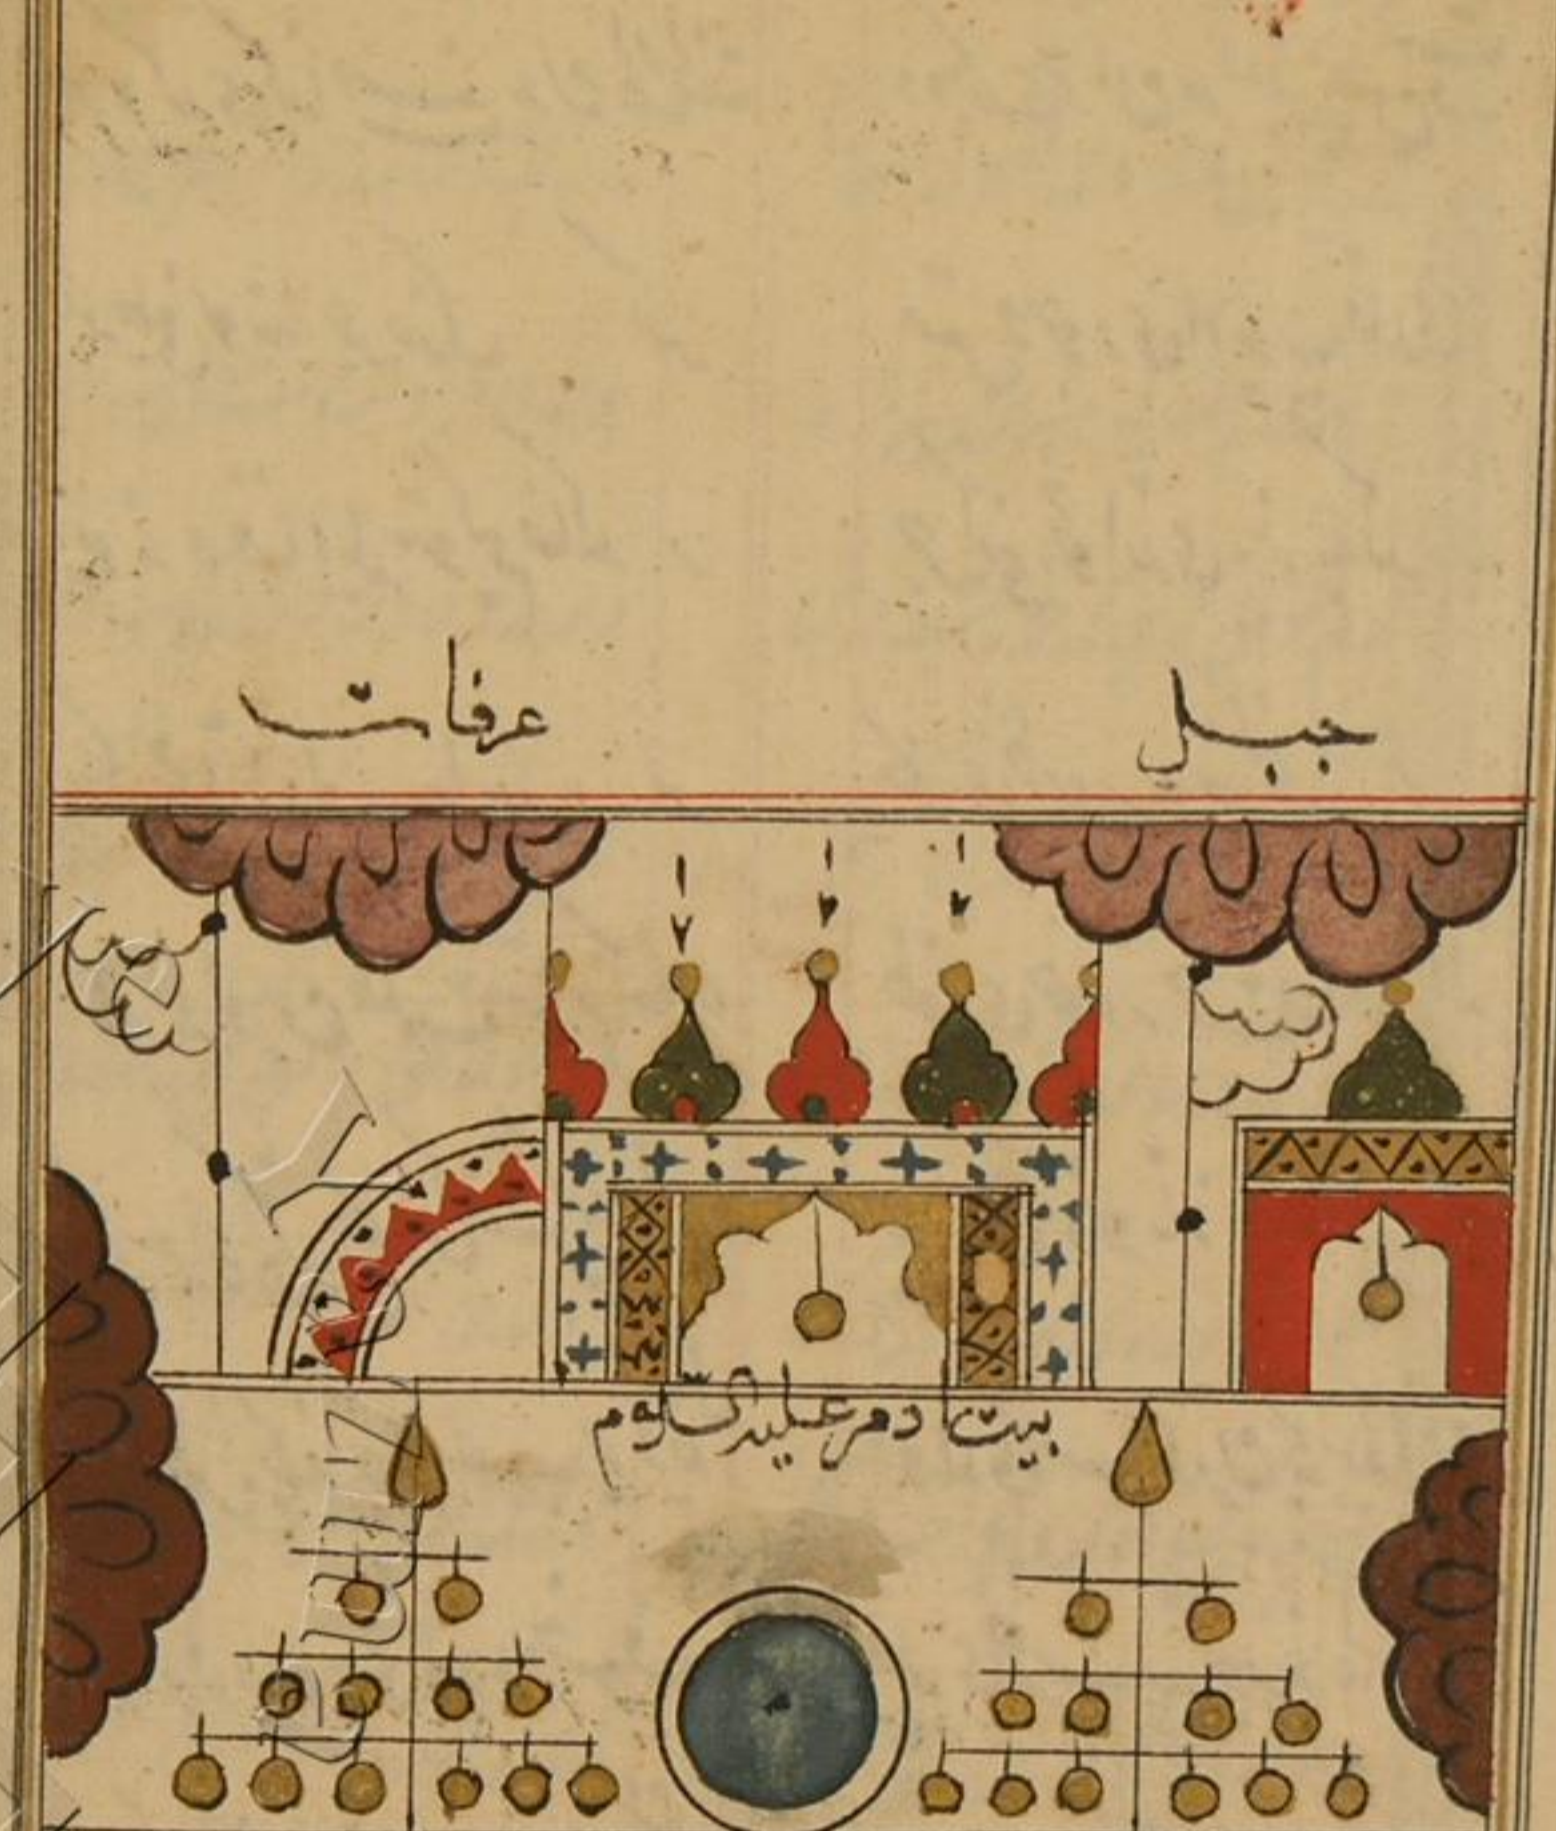 جبل عرفات
بيت ادم عليه السلام